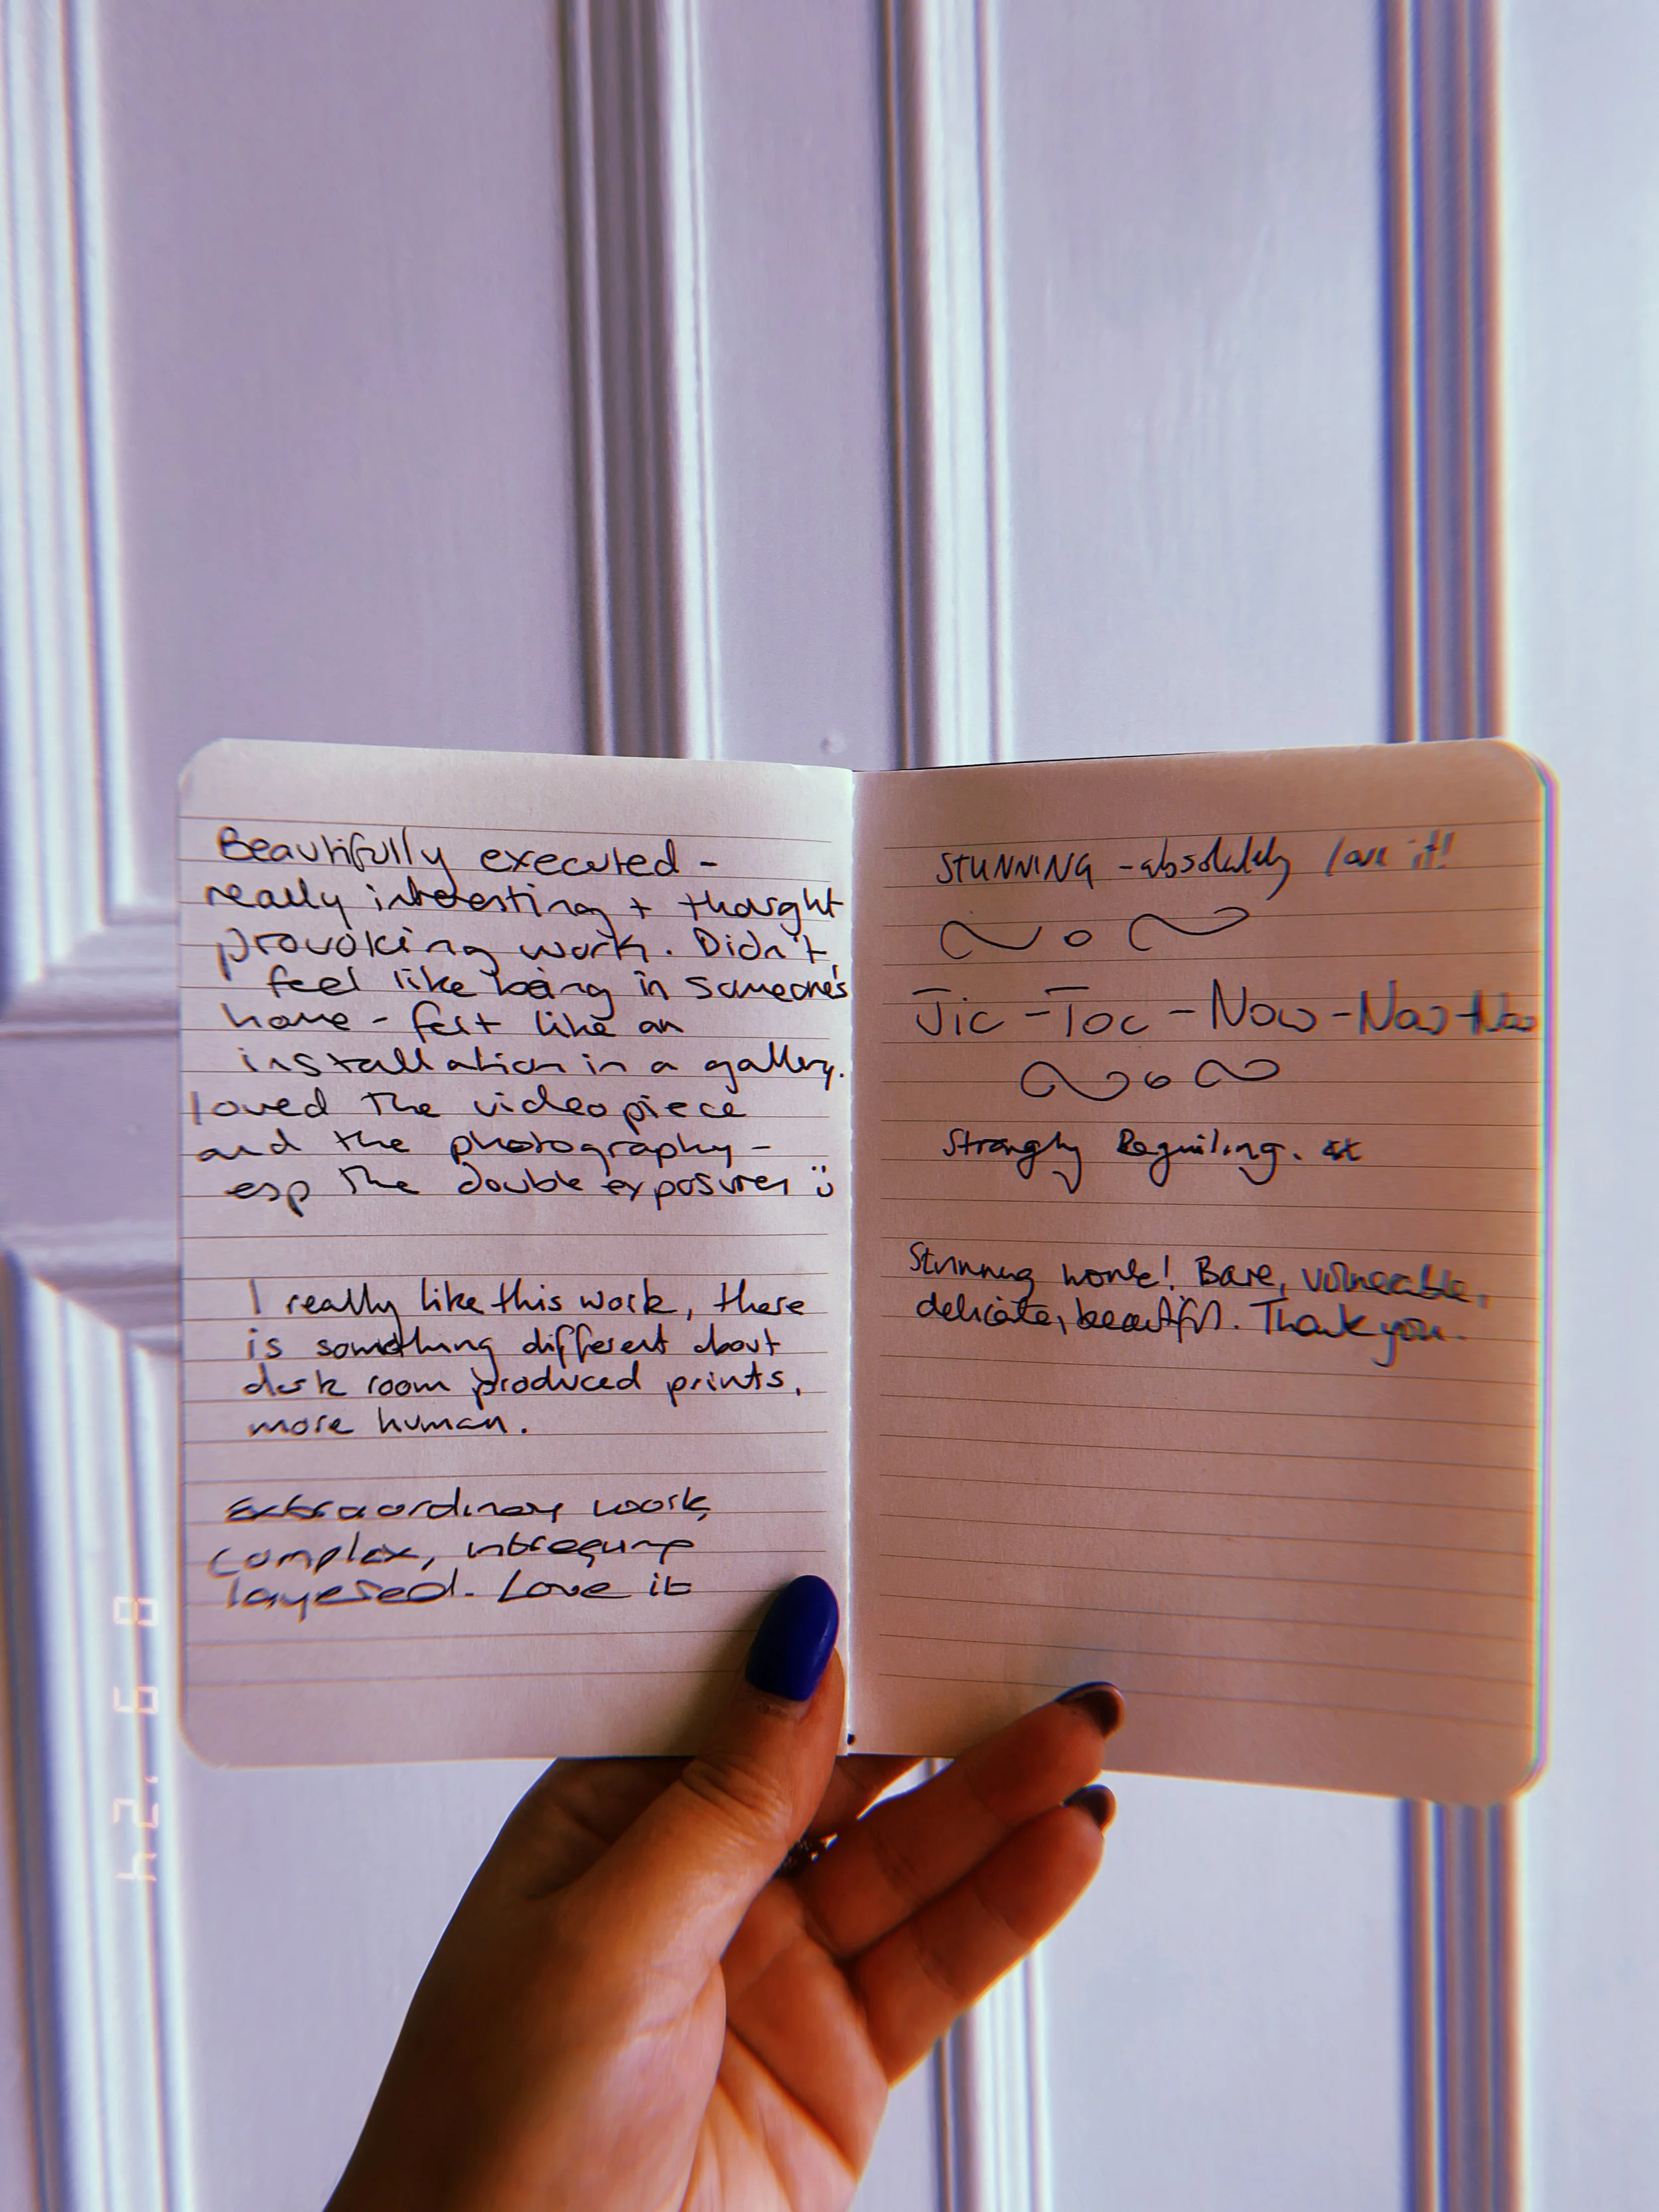 Beautifully executed -
really interesting + thought
provoking work. Didn't
feel like being in someone's
home - felt like an
installation in a gallery.
loved the video piece
and the photography -
esp the double exposures
I really like this work, there
is something different about
dark room produced prints,
more human.
Extraordinary work,
complex, intreguing
layered. Love it
STUNNING - absolutely love it!
Tic - Toc - Now - Now - Now
Strongly Beguiling.
Stunning work! Bare, vulnerable,
delicate, beautiful. Thank you.
8 6 '24